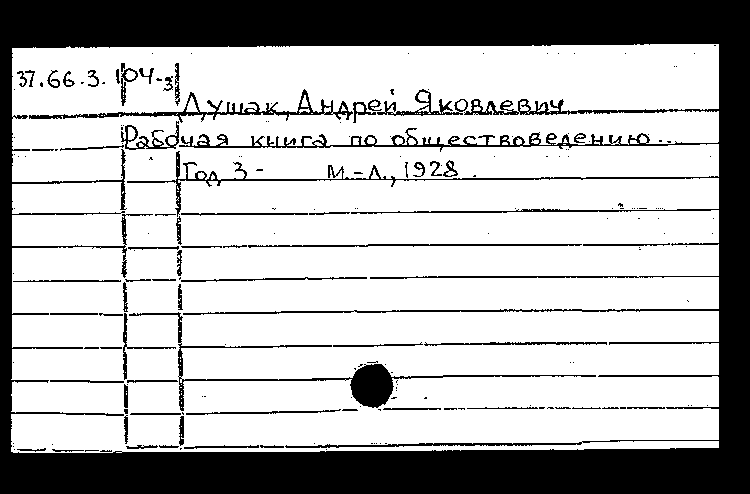 37.66.3.104-3
Душак, Андрей Яковлевич
Рабочая книга по обществоведению...
Год 3- М.-Л., 1928.